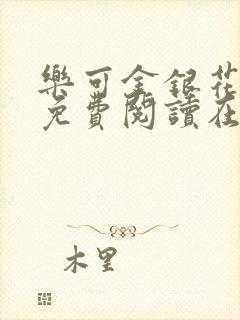 樂可金銀花
免費閱讀在
木里